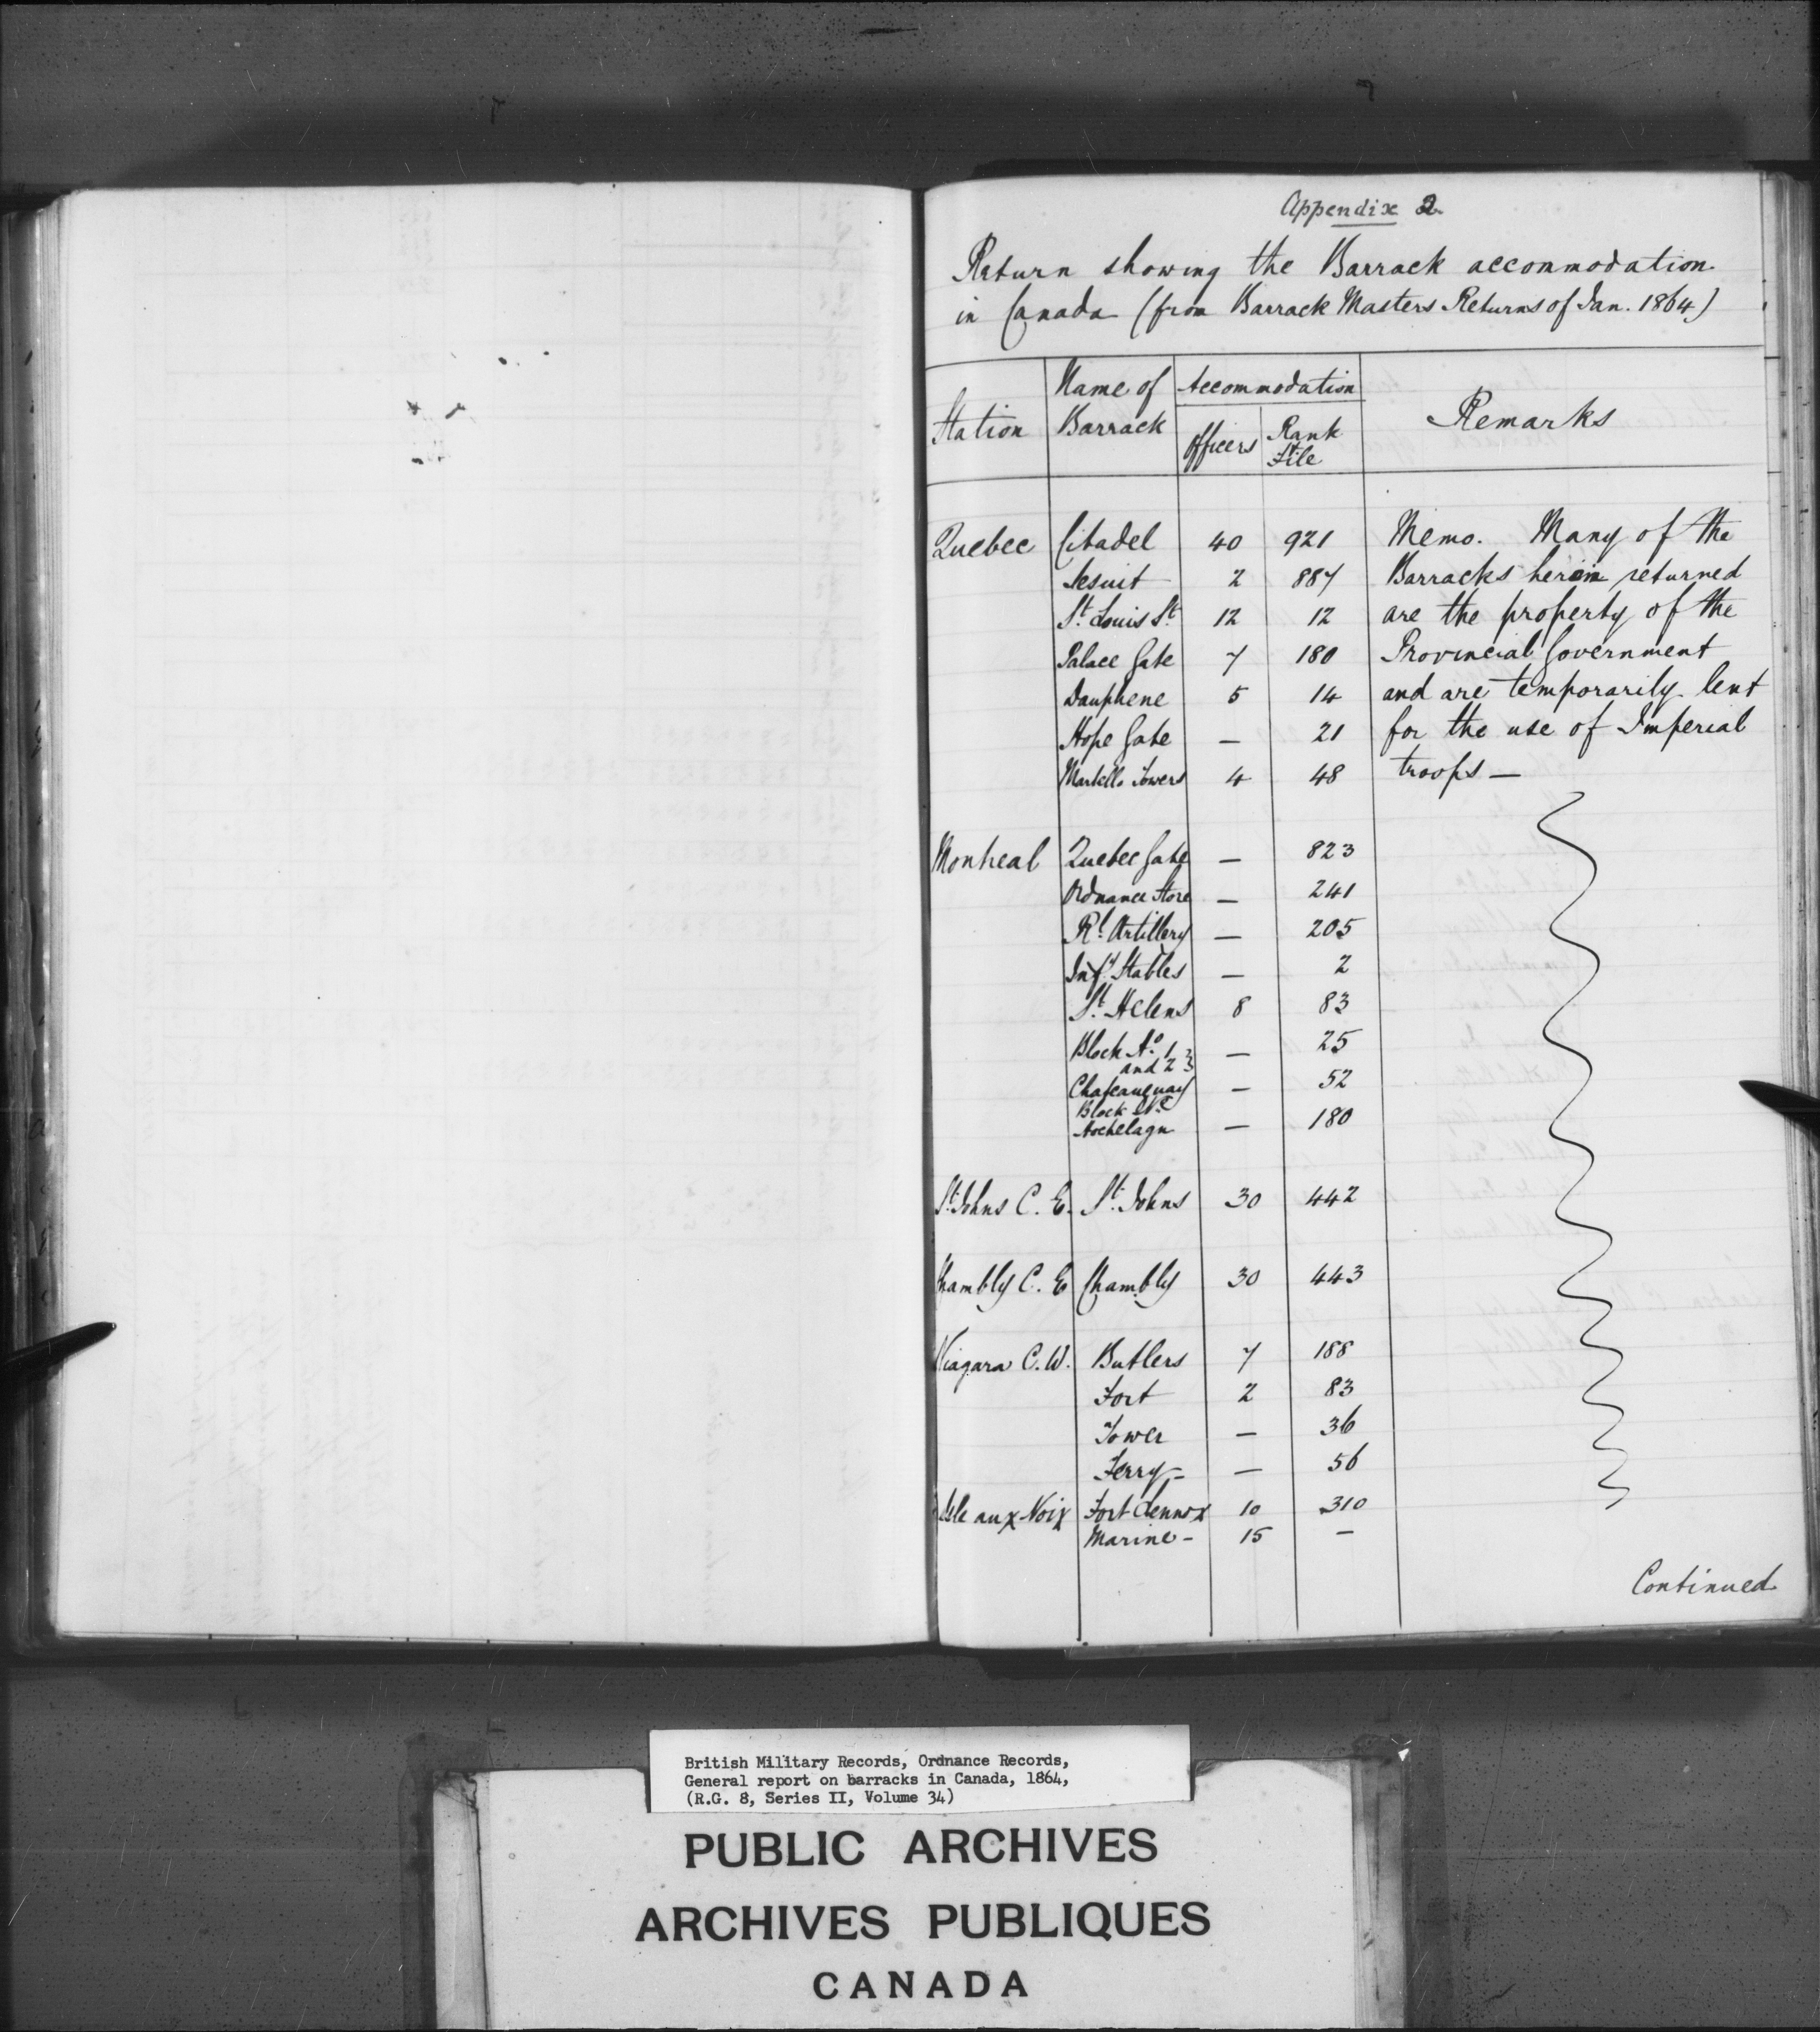 Appendix 2
Return showing the Barrack accommodation
in Canada (from Barrack Masters Returns of Jan. 1864)
Station Name of Barrack Accommodation Officers Rank & File Remarks
Quebec Citadel 40 921 Memo. Many of the
Jesuit 2 887 Barracks herein returned
St. Louis St. 12 12 are the property of the
Palace Gate 7 180 Provincial Government
Dauphene 5 14 and are temporarily lent
Hope Gate — 21 for the use of Imperial
Martello Towers 4 48 troops —
Montreal Quebec Gate — 823
Ordnance Store — 241
Rl. Artillery — 205
Infy. Stables — 2
St. Helens 8 83
Block No. 1 — 25
and 2
Chateauguay — 52
Block
Hochelaga — 180
St. Johns C. E. St. Johns 30 442
Chambly C. E Chambly 30 443
Niagara C. W. Butlers 7 188
Fort 2 83
Tower — 36
Ferry — 56
Isle aux Noix Fort Lennox 10 310
Marine - 15 —
Continued
British Military Records, Ordnance Records,
General report on barracks in Canada, 1864,
(R.G. 8, Series II, Volume 34)
PUBLIC ARCHIVES
ARCHIVES PUBLIQUES
CANADA